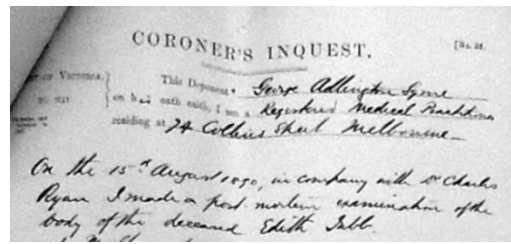 CORONER'S INQUEST.
[No.
OF VICTORIA. } This Deponent, George Adlington Syme
TO WIT on h oath saith, I am a Registered Medical Practitioner
residing at 74 Collins Street Melbourne
On the 15th August 1890, in company with Dr Charles
Ryan I made a post mortem examination of the
body of the deceased Edith